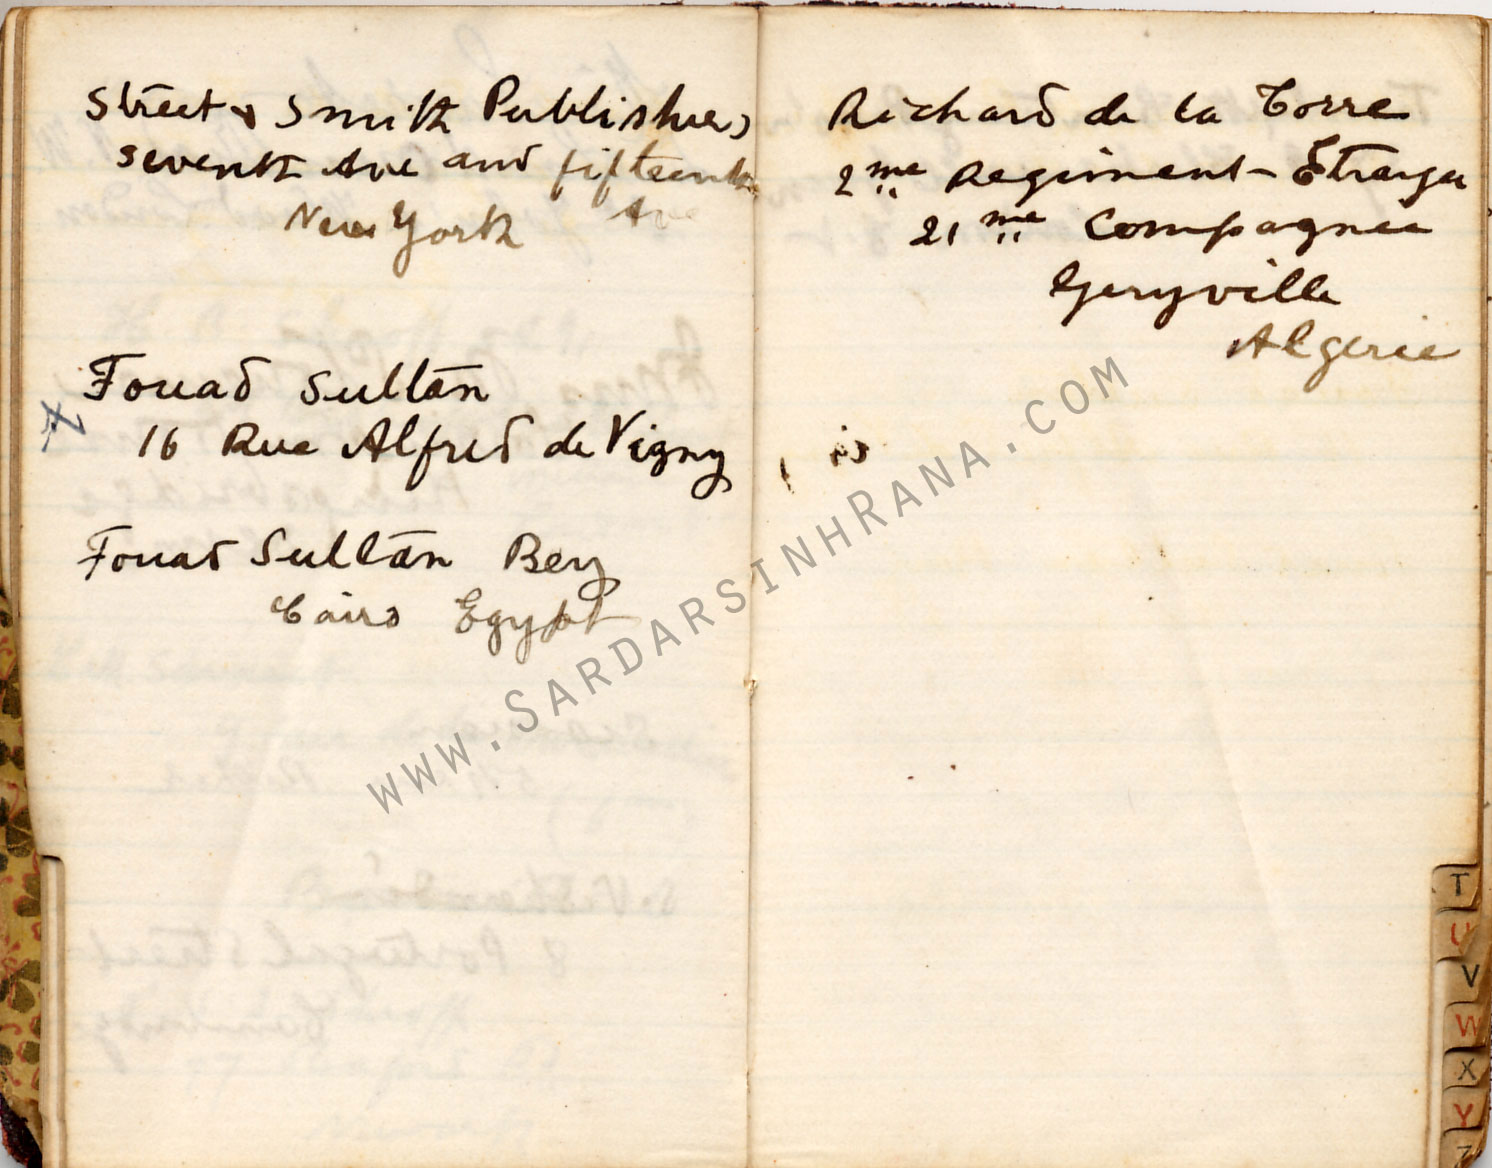 Street & Smith Publishers
Seventh Ave and fifteenth
Ave
New York
Fouad Sultan
16 Rue Alfred de Vigny
Fouad Sultan Bey
Cairo Egypt
Richard de la Torre
2me Regiment - Étranger
21me Compagnie
Geryville
Algerie
is
www.SARDARSINHRANA.COM
T
U
V
W
X
Y
Z